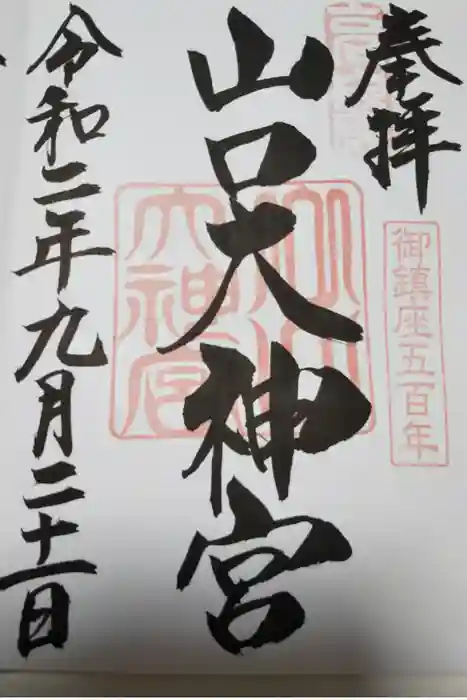 奉拝
御鎮座五百年
山口大神宮
令和二年九月二十一日